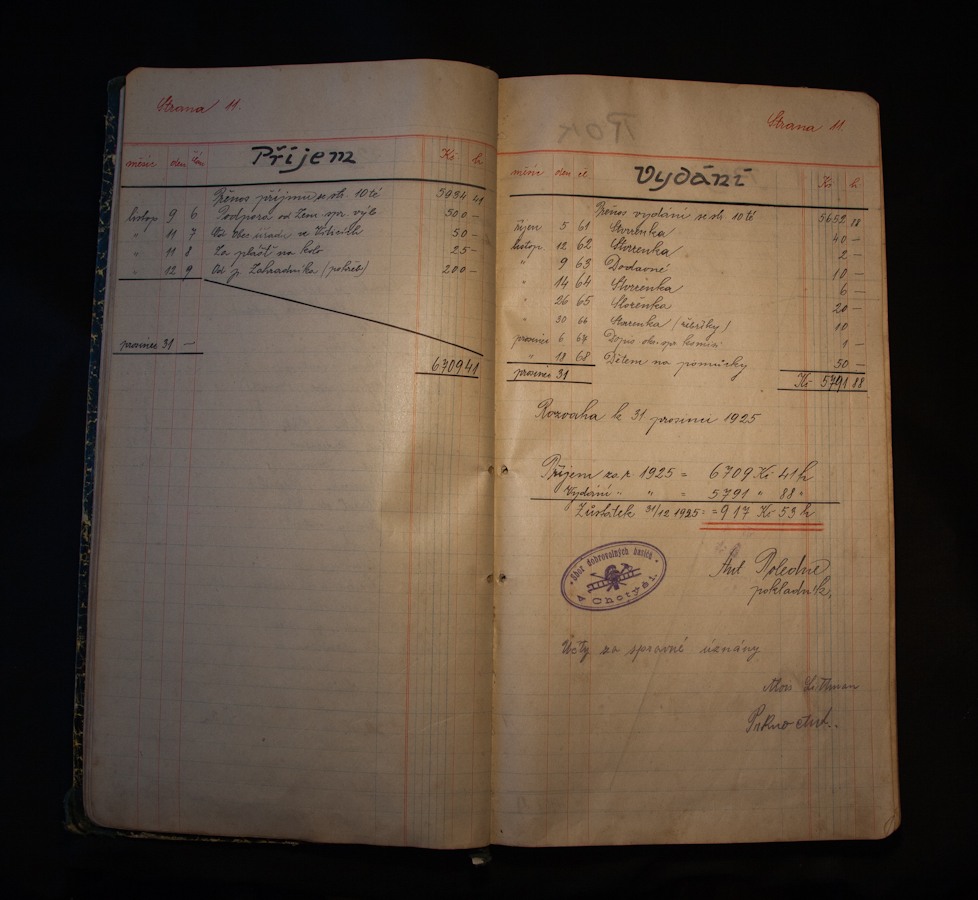 Strana 11.
měsíc den čís. Příjem Kč h
Přenos příjmu se str. 10 té 5984 41
listop 9 6 Podpora od Zem. spr. výb. 500 –
" 11 7 Od Obec. úřadu ve 50 –
" 11 8 Za plášť na kolo 25 –
" 12 9 Od p. Zahradníka (pohřeb) 200 –
prosinec 31 –
6709 41
Rok
Strana 11
měsíc den čí. Vydání Kč h
Přenos vydání se str. 10 té 5652 88
říjen 5 61 Stvrzenka 40 –
listop 12 62 Stvrzenka 2 –
" 9 63 Dodavné 10 –
" 14 64 Stvrzenka 6 –
" 26 65 Stvrzenka 20 –
" 30 66 Stvrzenka (žebříky) 10
prosinec 6 67 Dopis okr. sp. komisi 1 –
" 18 68 Dětem na pomůcky 50 –
prosinec 31 Kč 5791 88
Rozvaha k 31 prosinci 1925
Příjem za r. 1925 = 6709 Kč 41 h
Vydání " " = 5791 " 88 "
Zůstatek 31/12 1925 = 917 Kč 53 h
Sbor dobrovolných hasičů
v Chotýši.
Ant. Poledne
pokladník,
Účty za správné uznány
Alois Littman
Ant.